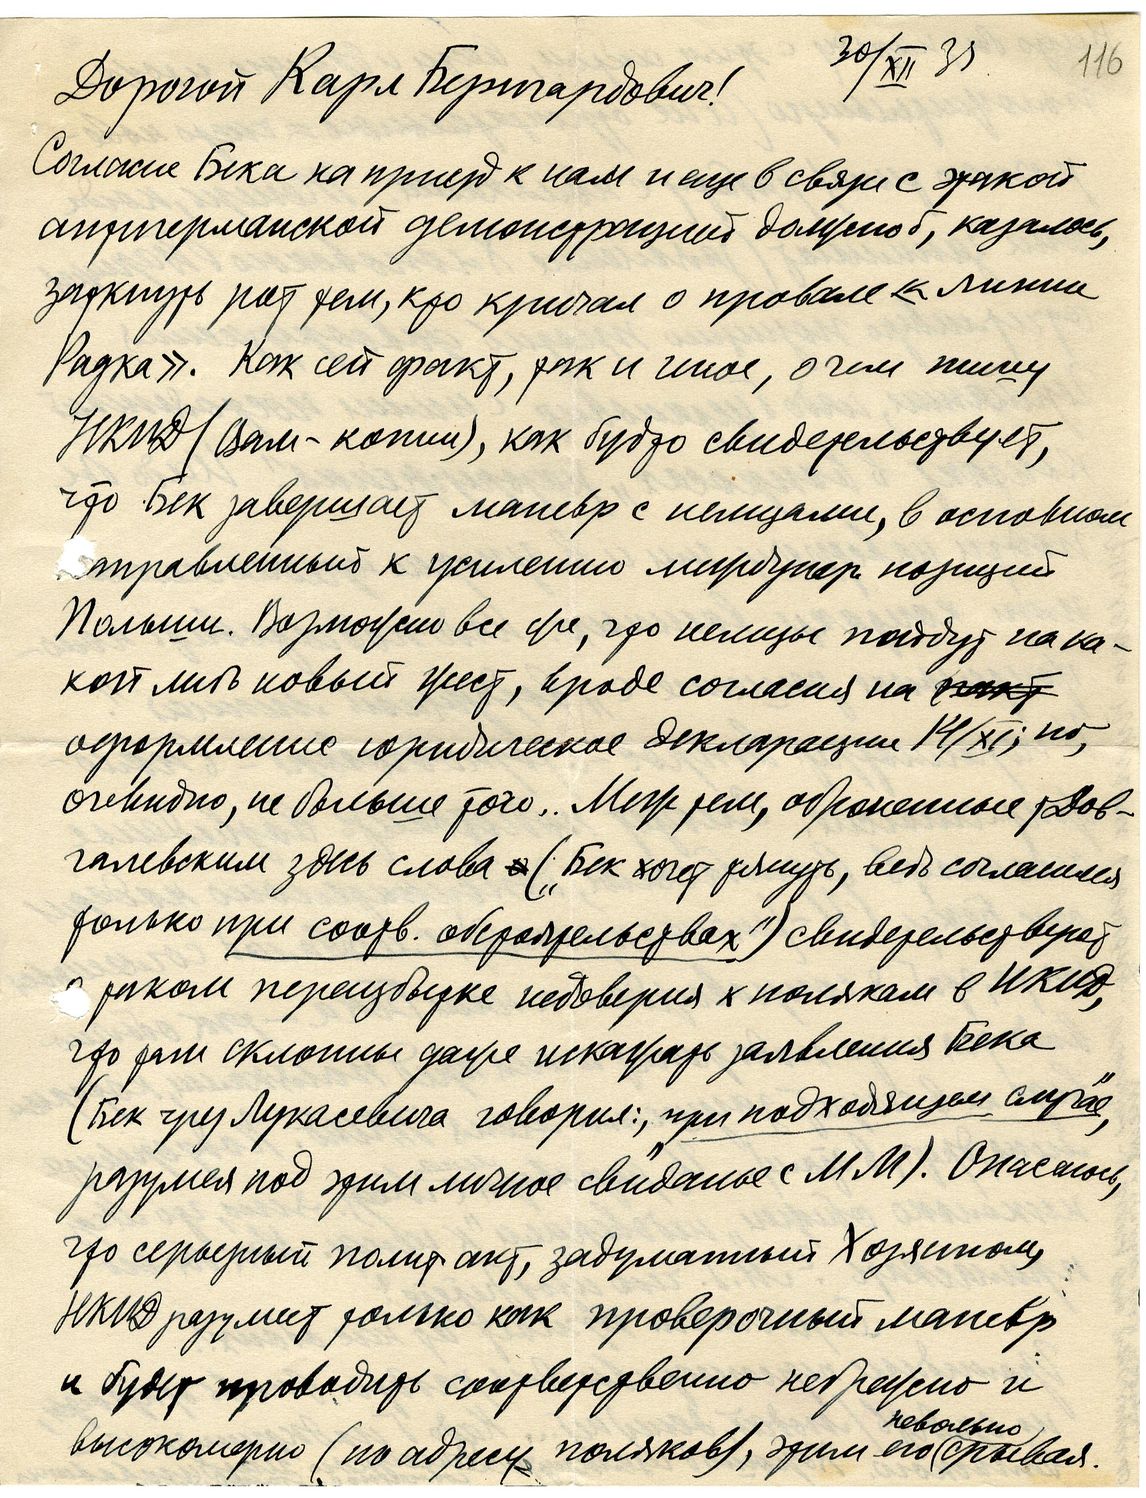 30/XII 33.
116
Дорогой Карл Бернгардович!
Согласие Бека на приезд к нам и еще в связи с такой
антигерманской демонстрацией должно б, казалось,
заткнуть рот тем, кто кричал о провале «линии
Радка». Как сей факт, так и иное, о чем пишу
НКИД (Вам – копии), как будто свидетельствует,
что Бек завершает маневр с немцами, в основном
направленный к усилению междунар. позиций
Польши. Возможно все же, что немцы пойдут на ка-
кой либо новый жест, вроде согласия на пакт
оформление юридическое декларации 14/XI; но,
очевидно, не больше того.. Меж тем, оброненные т. Дов-
галевским здесь слова („Бек хочет тянуть, ведь согласился
только при соотв. обстоятельствах") свидетельствуют
о таком переизбытке недоверия к полякам в НКИД,
что там склонны даже искажать заявления Бека
(Бек через Лукасевича говорил: „при подходящем случае",
разумея под этим личное свиданье с ММ). Опасаюсь,
что серьезный полит. акт, задуманный Хозяином,
НКИД разумеет только как проверочный маневр
и будет проводить соответственно небрежно и
высокомерно (по адресу поляков), этим его (невольно) срывая.